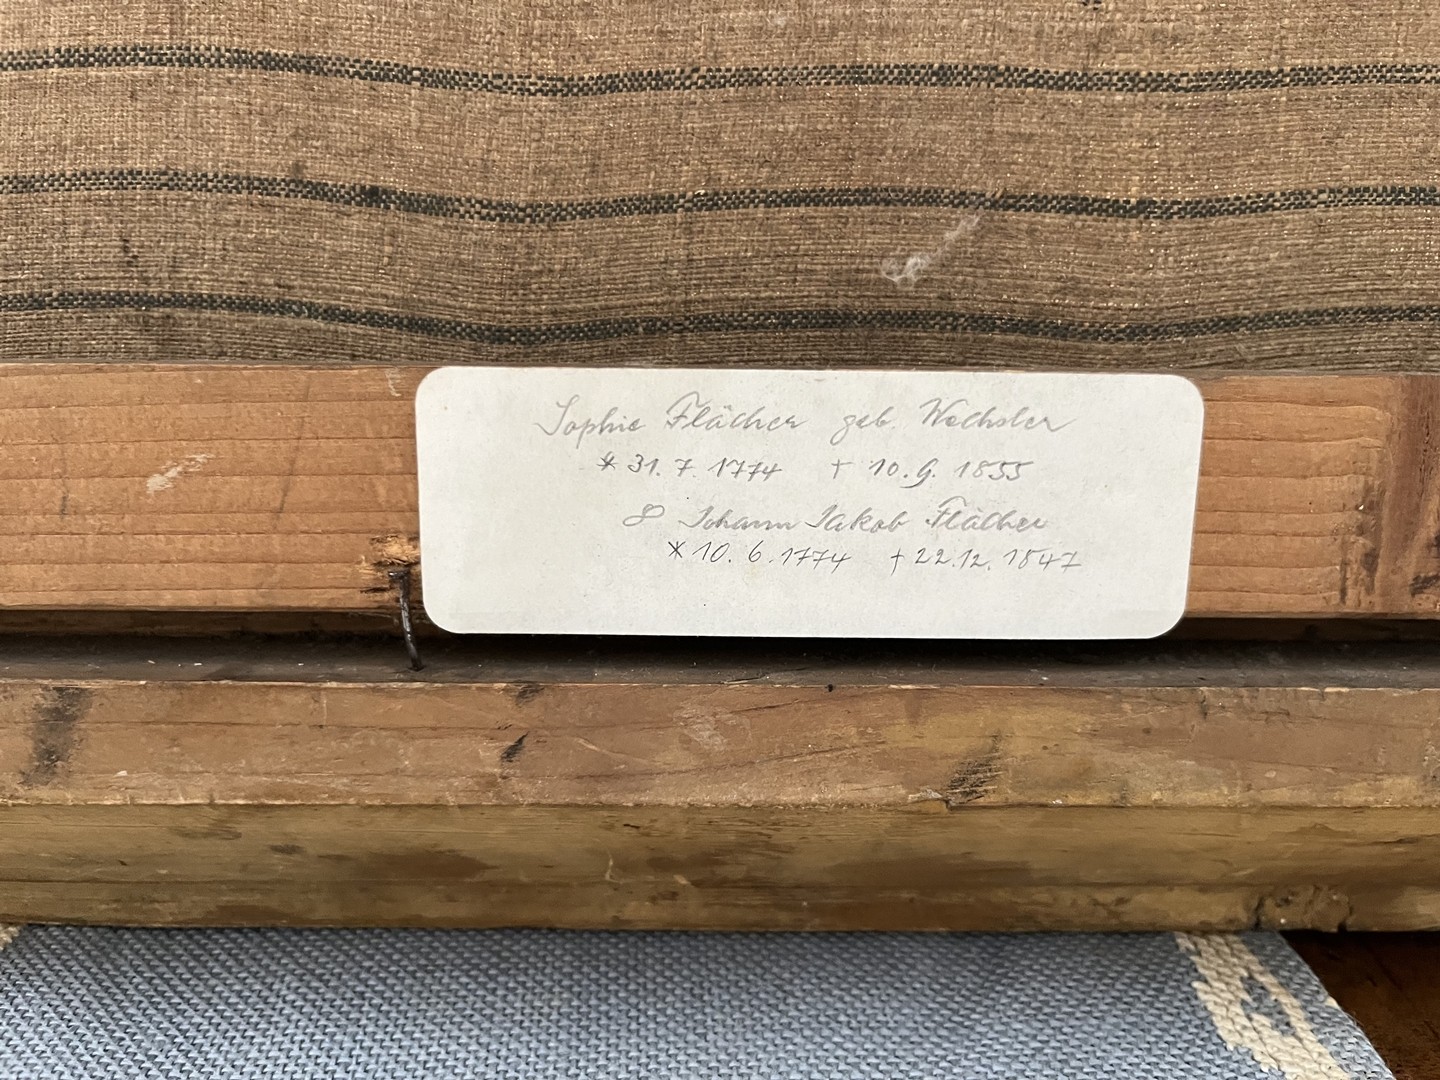 Sophie Flächer geb. Wechsler
* 31. 7. 1774 † 10. 9. 1855
∞ Johann Jakob Flächer
* 10. 6. 1774 † 22. 12. 1847